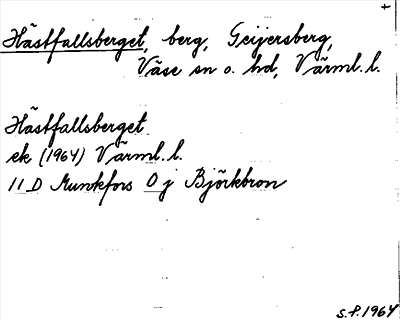 +
Hästfallsberget, berg, Geijersberg,
Väse sn o. hd, Värml. l.
Hästfallsberget
ek (1964) Värml. l.
11 D Munkfors O j Björkbron
S.P. 1964